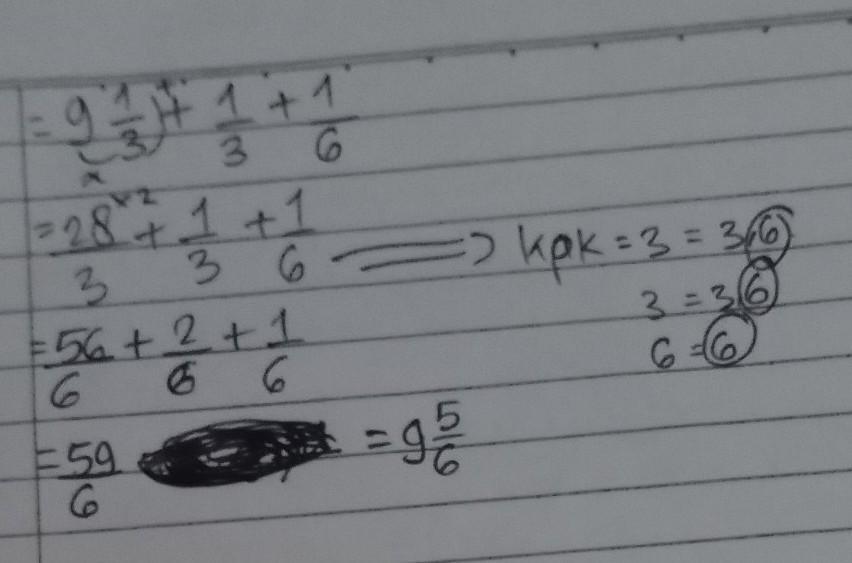 = 9 1/3 + 1/3 + 1/6
x
= 28/3 ×2 + 1/3 + 1/6 => kpk = 3 = 3,6
3 = 3 6
6 = 6
= 56/6 + 2/6 + 1/6
= 59/6 = 9 5/6